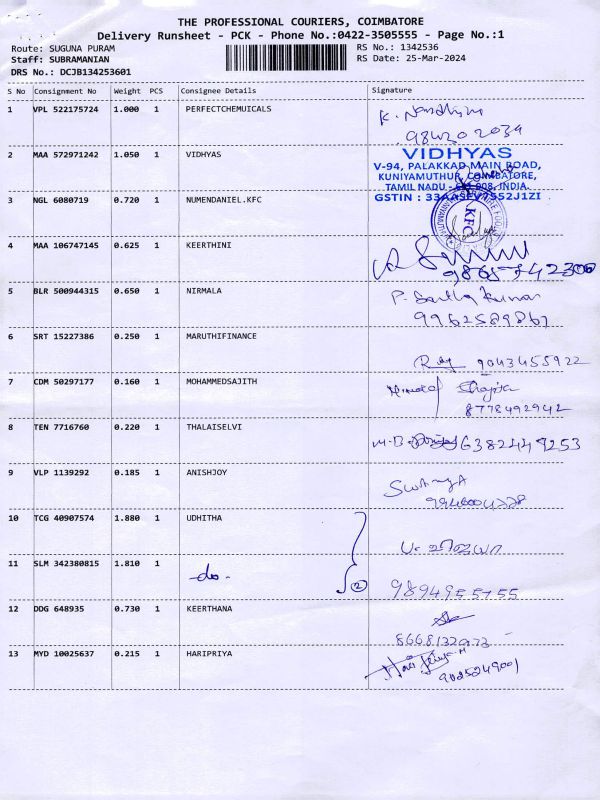 THE PROFESSIONAL COURIERS, COIMBATORE
Delivery Runsheet - PCK - Phone No.:0422-3505555 - Page No.:1
Route: SUGUNA PURAM
Staff: SUBRAMANIAN
DRS No.: DCJB134253601
RS No.: 1342536
RS Date: 25-Mar-2024
S No Consignment No Weight PCS Consignee Details Signature
1 VPL 522175724 1.000 1 PERFECTCHEMUICALS
2 MAA 572971242 1.050 1 VIDHYAS
VIDHYAS
V-94, PALAKKAD MAIN ROAD,
KUNIYAMUTHUR, COIMBATORE,
TAMIL NADU - 641 008, INDIA.
3 NGL 6080719 0.720 1 NUMENDANIEL.KFC
KFC
4 MAA 106747145 0.625 1 KEERTHINI
5 BLR 500944315 0.650 1 NIRMALA
9962589867
6 SRT 15227386 0.250 1 MARUTHIFINANCE
9043455922
7 CDM 50297177 0.160 1 MOHAMMEDSAJITH
8778492942
8 TEN 7716760 0.220 1 THALAISELVI
6382449253
9 VLP 1139292 0.185 1 ANISHJOY
10 TCG 40907574 1.880 1 UDHITHA
11 SLM 342380815 1.810 1 -do-
2
9894955755
12 DDG 648935 0.730 1 KEERTHANA
13 MYD 10025637 0.215 1 HARIPRIYA